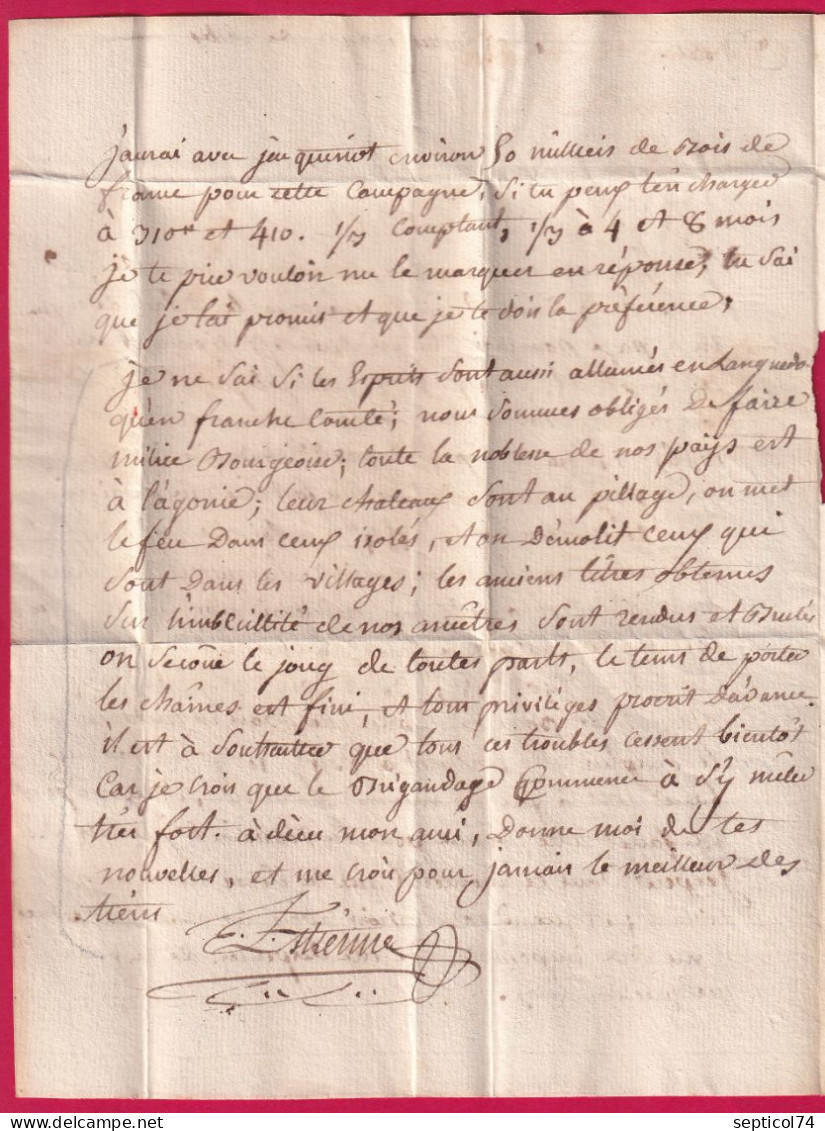 j'aurai avec jeu quiriot environ 50 milliers de Bois de
france pour cette Campagne, Si tu peux t'en charger
à 310ᵗᵗ et 410. 1/3 Comptant, 1/3 à 4 et 8 mois
je te prie vouloir me le marquer en réponse, tu Sai
que je t'ai promis et que je te dois la préférence,
je ne Sai Si les Esprits sont aussi allumés en Languedo.
qu'en franche Comté; nous Sommes obligés De faire
milice Bourgeoise; toute la noblesse de nos pays est
à l'agonie; leur chateaux Sont au pillage, on met
le feu Dans ceux isolés, et on Démolit ceux qui
Sont Dans les villages; les anciens titres obtenus
Sur l'imbécillité de nos ancêtres Sont rendus et Brulés
on Secoüe le joug de toutes parts, le tems de porter
les chaînes est fini, et tout privilèges proscrit D'avance.
il est à Souhaitter que tous ces troubles cessent bientôt
Car je Crois que le Brigandage Commence à S'y mêler
très fort. à dieu mon ami, Donne moi de tes
nouvelles, et me Crois pour jamais le meilleur des
tiens
septicol74